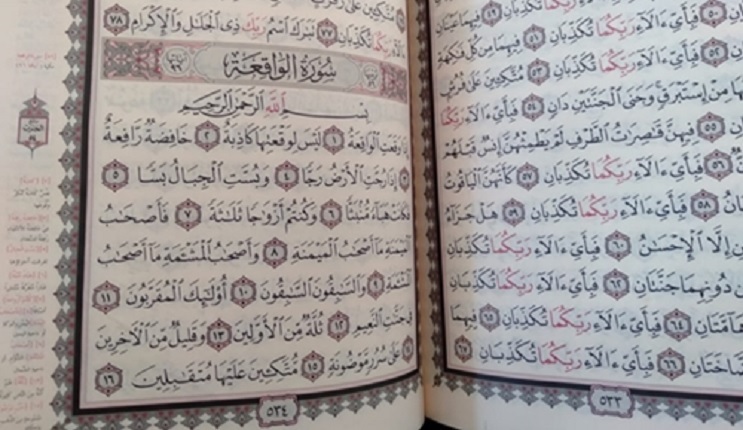 تُكَذِّبَانِ ٤٩ فِيهِمَا عَيْنَانِ
٥٠ فَبِأَيِّ ءَالَآءِ رَبِّكُمَا تُكَذِّبَانِ ٥١ فِيهِمَا مِن كُلِّ فَٰكِهَةٍ
٥٢ فَبِأَيِّ ءَالَآءِ رَبِّكُمَا تُكَذِّبَانِ ٥٣ مُتَّكِـِٔينَ عَلَىٰ فُرُشٍ
مِنْ إِسْتَبْرَقٍ وَجَنَى ٱلْجَنَّتَيْنِ دَانٍ ٥٤ فَبِأَيِّ ءَالَآءِ رَبِّكُمَا
٥٥ فِيهِنَّ قَٰصِرَٰتُ ٱلطَّرْفِ لَمْ يَطْمِثْهُنَّ إِنسٌ قَبْلَهُمْ
٥٦ فَبِأَيِّ ءَالَآءِ رَبِّكُمَا تُكَذِّبَانِ ٥٧ كَأَنَّهُنَّ ٱلْيَاقُوتُ
٥٨ فَبِأَيِّ ءَالَآءِ رَبِّكُمَا تُكَذِّبَانِ ٥٩ هَلْ جَزَآءُ
إِلَّا ٱلْإِحْسَٰنُ ٦٠ فَبِأَيِّ ءَالَآءِ رَبِّكُمَا تُكَذِّبَانِ
دُونِهِمَا جَنَّتَانِ ٦٢ فَبِأَيِّ ءَالَآءِ رَبِّكُمَا تُكَذِّبَانِ
٦٤ فَبِأَيِّ ءَالَآءِ رَبِّكُمَا تُكَذِّبَانِ ٦٥ فِيهِمَا
نَضَّاخَتَانِ ٦٦ فَبِأَيِّ ءَالَآءِ رَبِّكُمَا تُكَذِّبَانِ ٦٧
٥٣٣
مُتَّكِـِٔينَ عَلَىٰ رَفْرَفٍ
ءَالَآءِ رَبِّكُمَا تُكَذِّبَانِ ٧٧ تَبَٰرَكَ ٱسْمُ رَبِّكَ ذِى ٱلْجَلَٰلِ وَٱلْإِكْرَامِ ٧٨
سُورَةُ الوَاقِعَةِ
بِسْمِ ٱللَّهِ ٱلرَّحْمَٰنِ ٱلرَّحِيمِ
إِذَا وَقَعَتِ ٱلْوَاقِعَةُ ١ لَيْسَ لِوَقْعَتِهَا كَاذِبَةٌ ٢ خَافِضَةٌ رَّافِعَةٌ
٣ إِذَا رُجَّتِ ٱلْأَرْضُ رَجًّا ٤ وَبُسَّتِ ٱلْجِبَالُ بَسًّا ٥
فَكَانَتْ هَبَآءً مُّنۢبَثًّا ٦ وَكُنتُمْ أَزْوَٰجًا ثَلَٰثَةً ٧ فَأَصْحَٰبُ
ٱلْمَيْمَنَةِ مَآ أَصْحَٰبُ ٱلْمَيْمَنَةِ ٨ وَأَصْحَٰبُ ٱلْمَشْـَٔمَةِ مَآ أَصْحَٰبُ
ٱلْمَشْـَٔمَةِ ٩ وَٱلسَّٰبِقُونَ ٱلسَّٰبِقُونَ ١٠ أُو۟لَٰٓئِكَ ٱلْمُقَرَّبُونَ ١١
فِى جَنَّٰتِ ٱلنَّعِيمِ ١٢ ثُلَّةٌ مِّنَ ٱلْأَوَّلِينَ ١٣ وَقَلِيلٌ مِّنَ ٱلْءَاخِرِينَ
١٤ عَلَىٰ سُرُرٍ مَّوْضُونَةٍ ١٥ مُّتَّكِـِٔينَ عَلَيْهَا مُتَقَٰبِلِينَ ١٦
٥٣٤